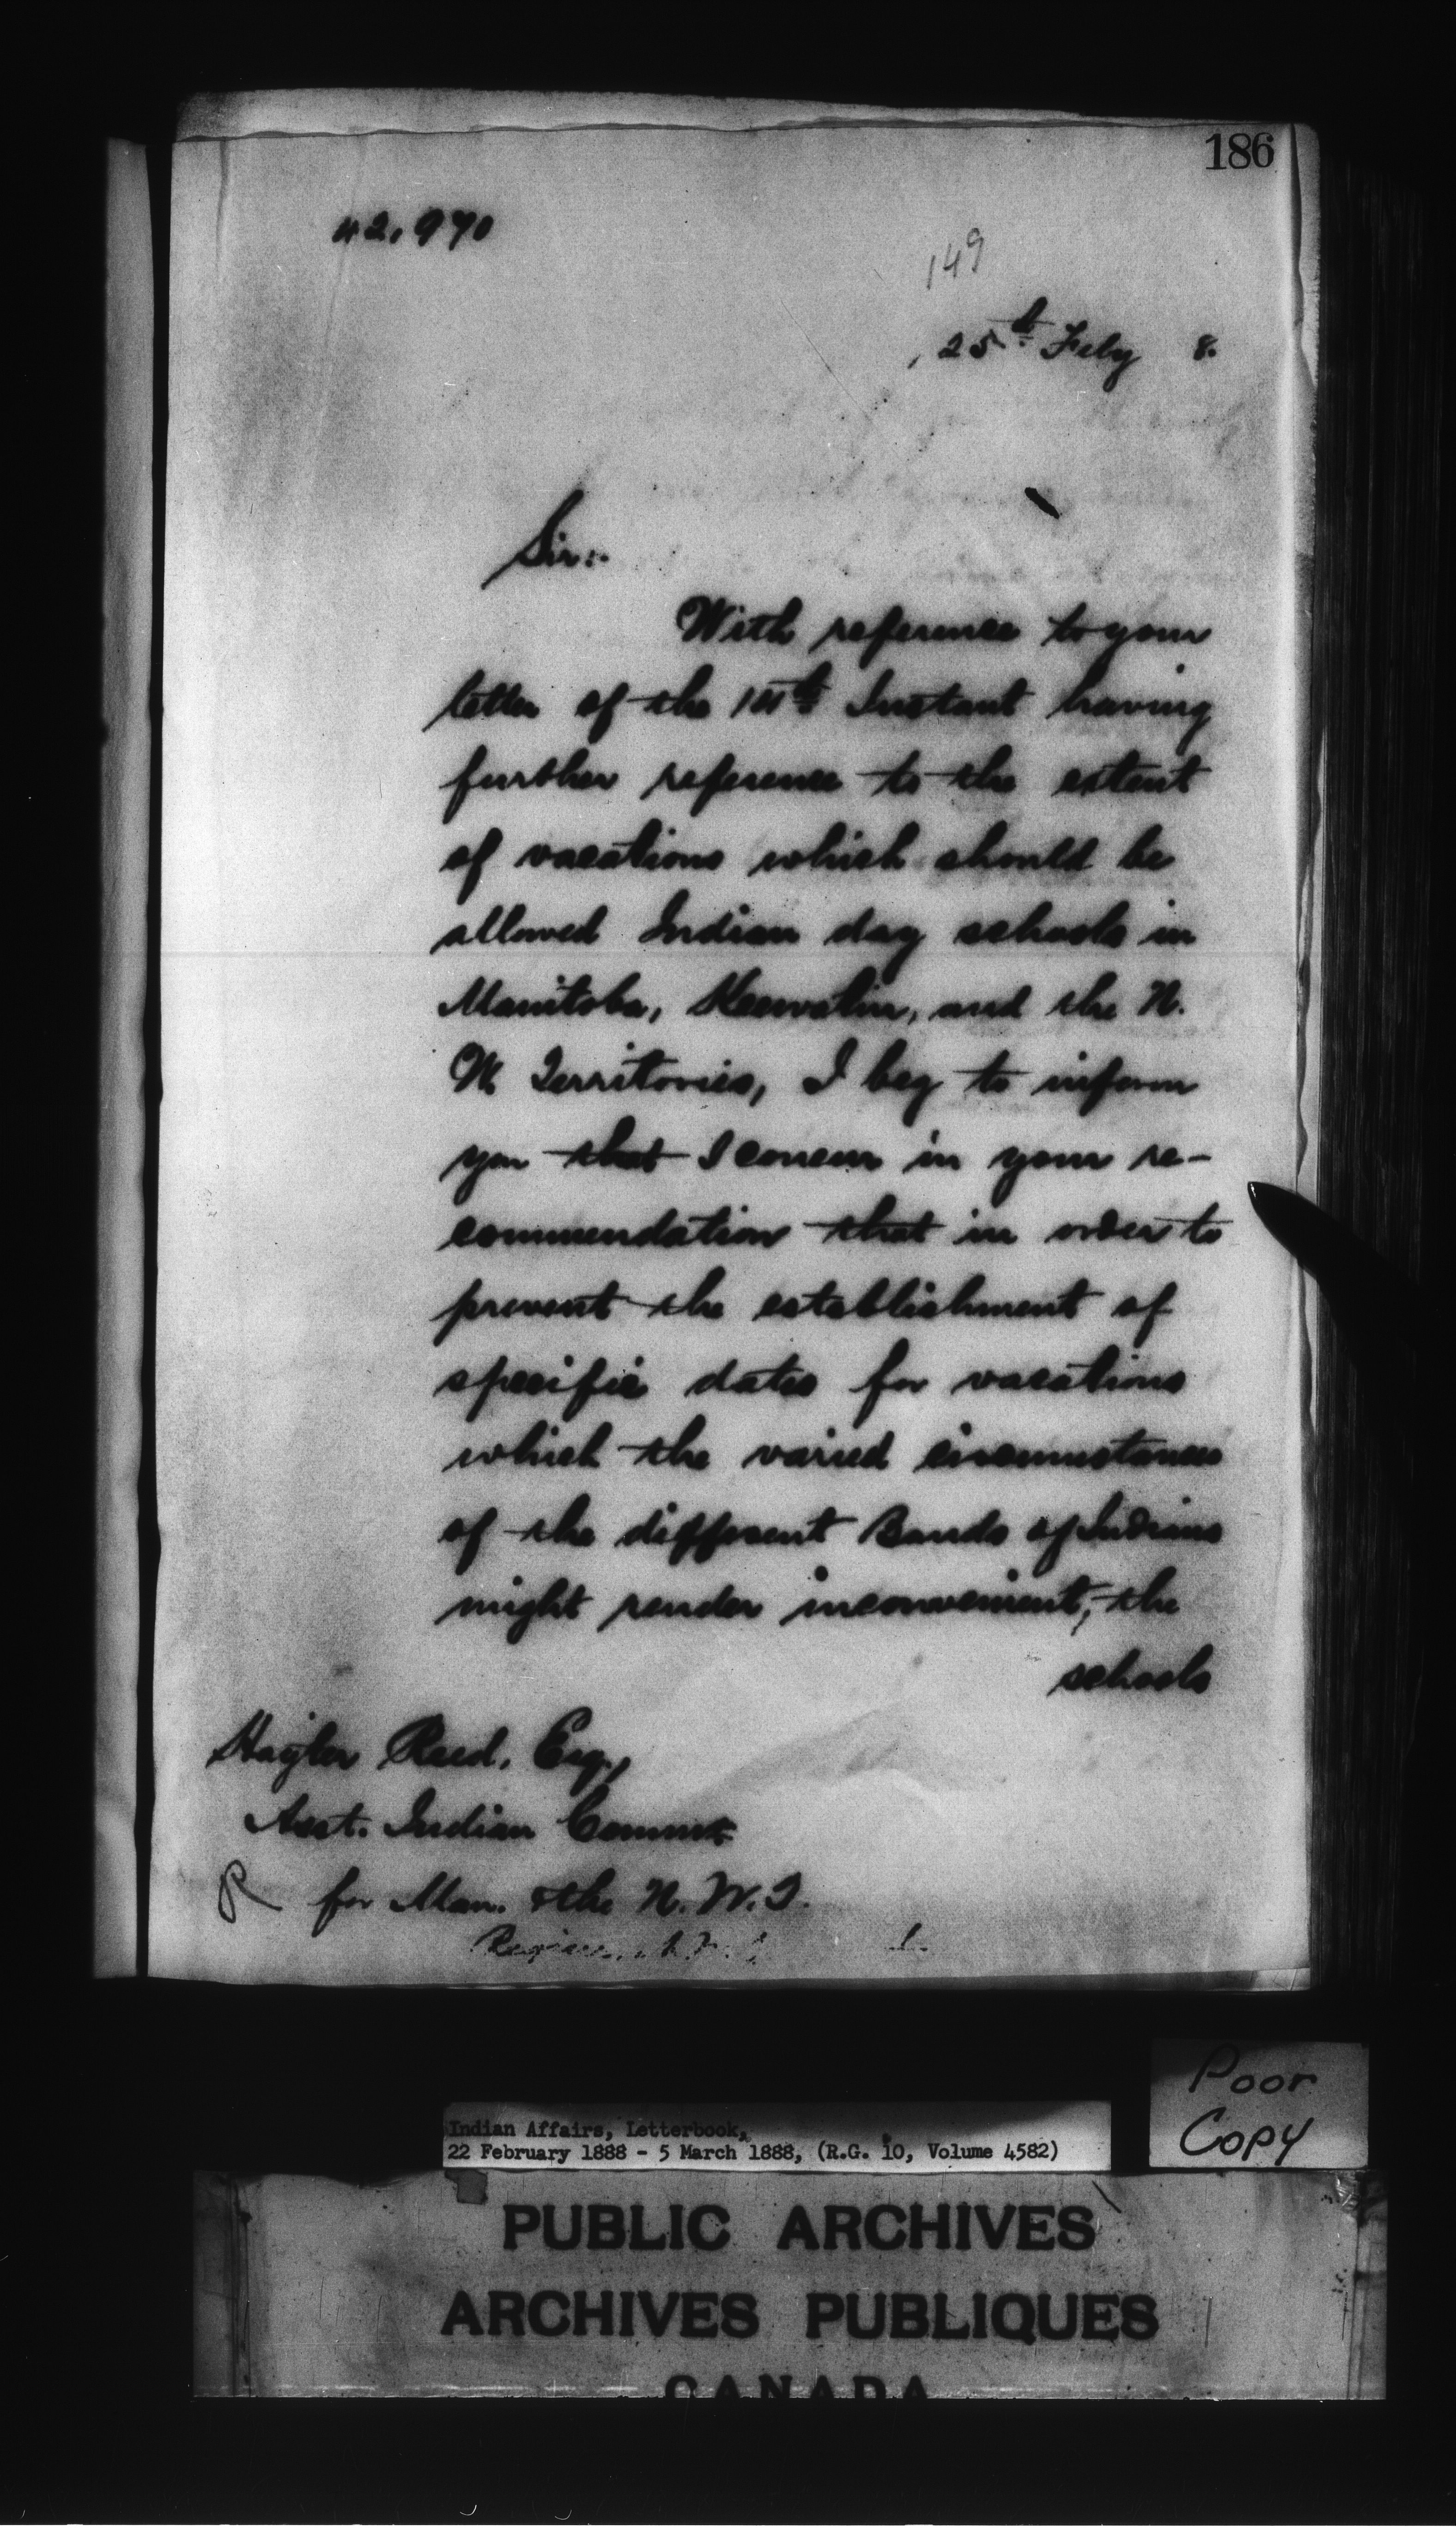 186
42,970
149
25th Feby 8.
Sir:-
With reference to your
letter of the 14th Instant having
further reference to the extent
of vacations which should be
allowed Indian day schools in
Manitoba, Keewatin, and the N.
W. Territories, I beg to inform
you that I concur in your re-
commendation that in order to
prevent the establishment of
specific dates for vacations
which the varied circumstances
of the different Bands of Indians
might render inconvenient, the
schools
Hayter Reed, Esq.,
Asst. Indian Commr
for Man. & the N.W.T.
Regina
Poor
Copy
Indian Affairs, Letterbook,
22 February 1888 - 5 March 1888, (R.G. 10, Volume 4582)
PUBLIC ARCHIVES
ARCHIVES PUBLIQUES
CANADA